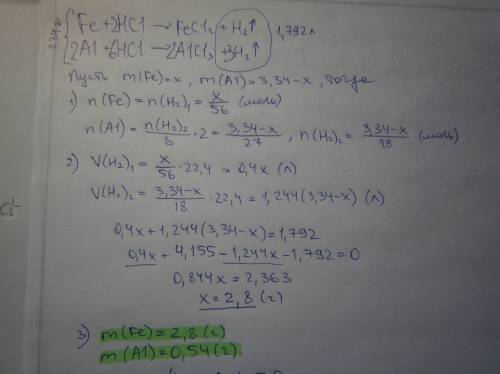 3,34г
Fe+2HCl → FeCl₂ + H₂↑ 1,792л
2Al+6HCl → 2AlCl₃ +3H₂↑
Пусть m(Fe)=x, m(Al)=3,34-x, тогда
1) n(Fe)=n(H₂)₁= x/56 (моль)
n(Al)= n(H₂)₂/3 · 2 = 3,34-x/27, n(H₂)₂= 3,34-x/18 (моль)
2) V(H₂)₁= x/56 · 22,4 = 0,4x (л)
V(H₂)₂= 3,34-x/18 · 22,4 = 1,244(3,34-x) (л)
0,4x+1,244(3,34-x)=1,792
0,4x+4,155-1,244x-1,792=0
0,844x=2,363
x=2,8(г)
3) m(Fe)=2,8(г)
m(Al)=0,54(г)